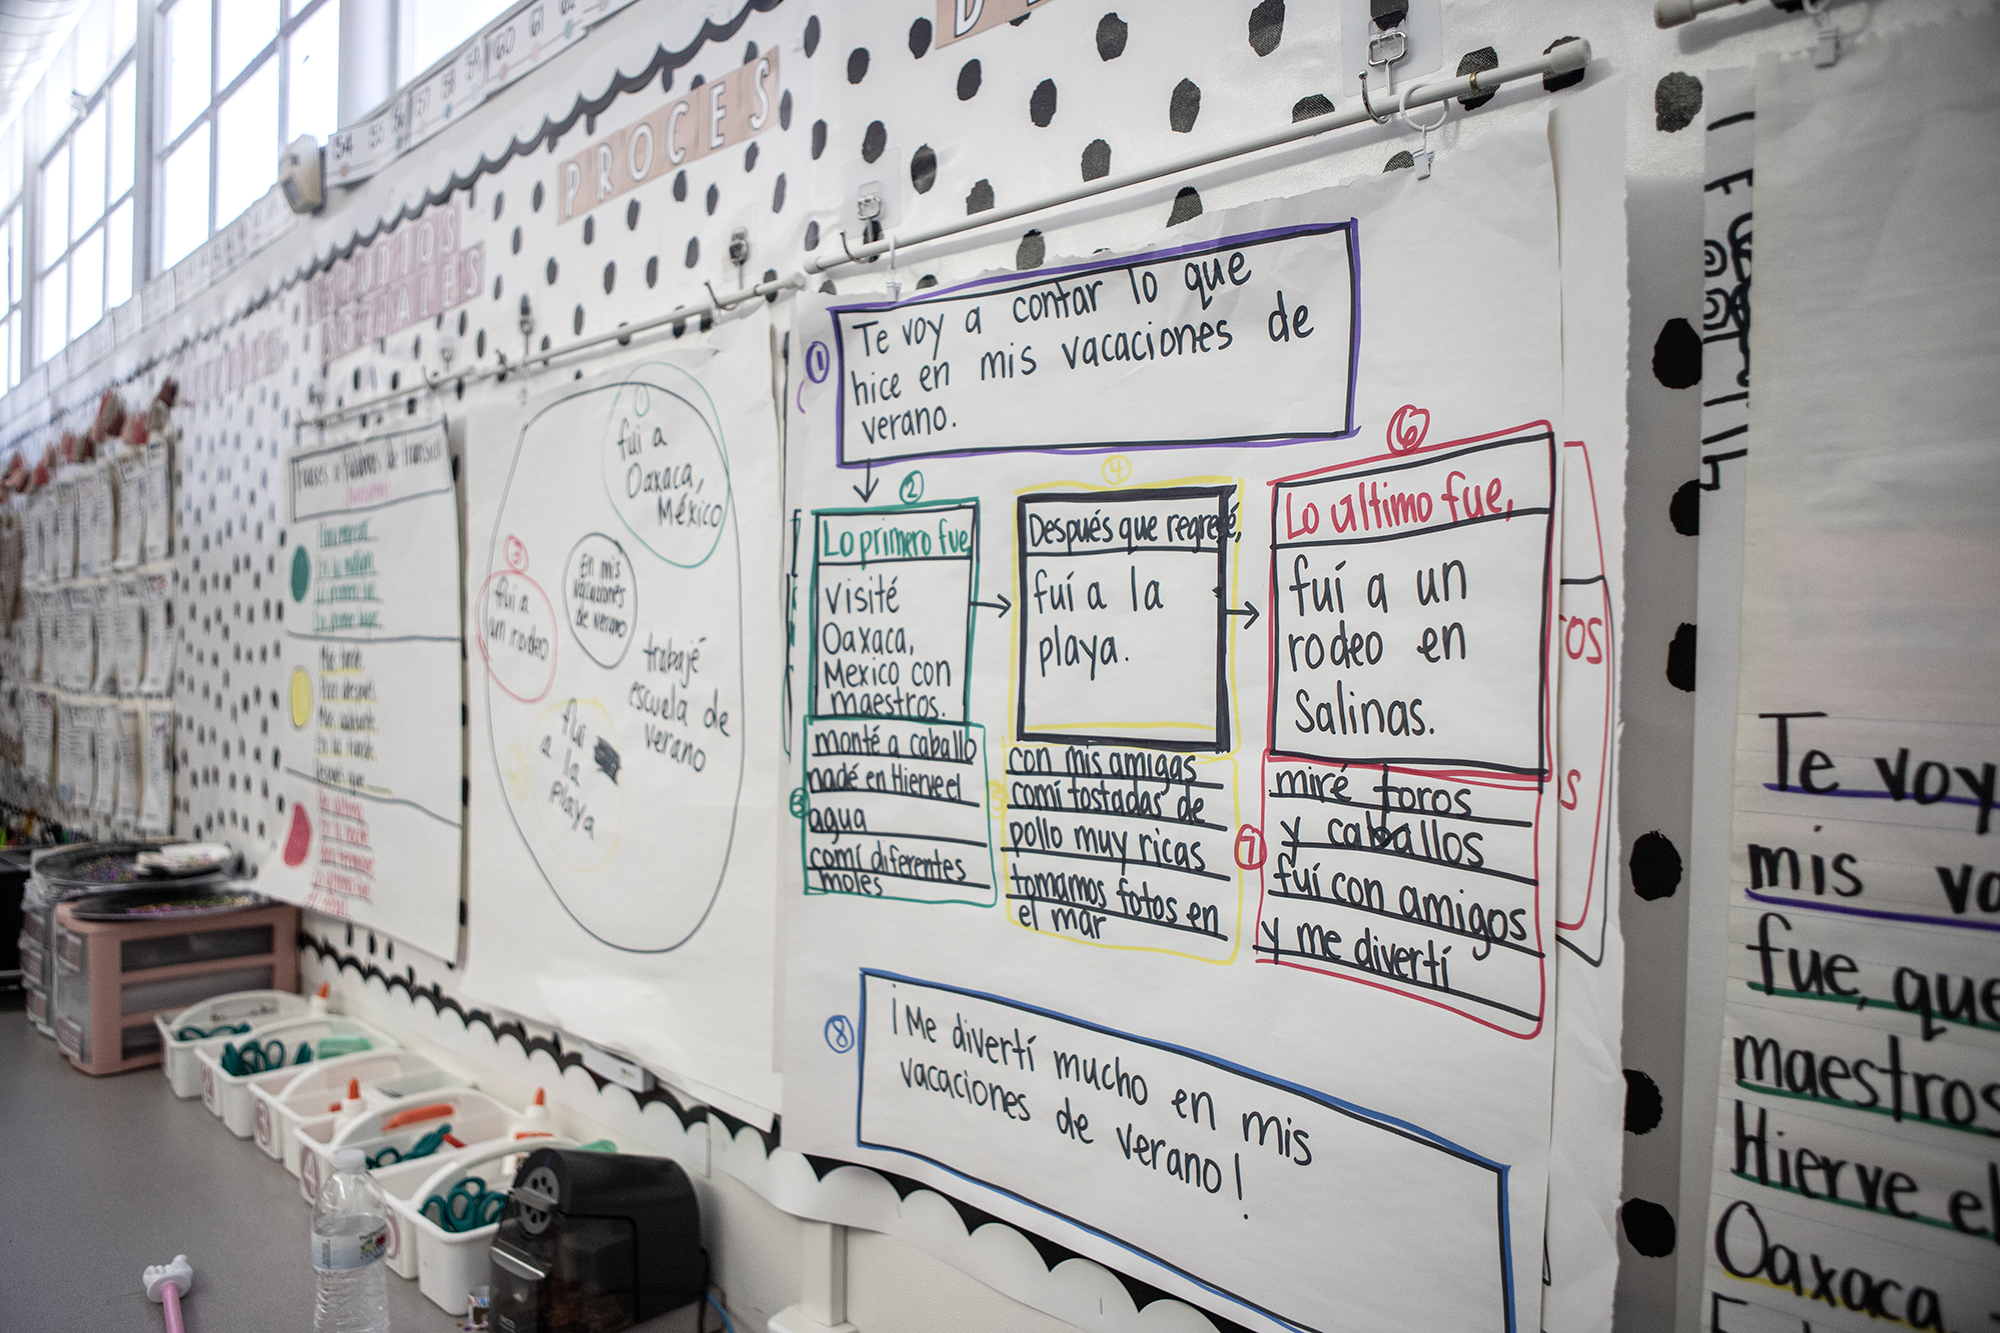 54 55 56 57 58 59 60 61 62
PROCES
ESTUDIOS
SOCIALES
Frases o Palabras de transición
fui a
Oaxaca,
México
3
fui a
un rodeo
en mis
vacaciones
de verano
trabajé
escuela de
verano
fui
a la
playa
1
Te voy a contar lo que
hice en mis vacaciones de
verano.
2
Lo primero fue
Visité
Oaxaca,
Mexico con
maestros.
3
monté a caballo
nadé en Hierve el
agua
comí diferentes
moles
4
Después que regresé,
fuí a la
playa.
5
con mis amigas
comí tostadas de
pollo muy ricas
tomamos fotos en
el mar
6
Lo ultimo fue,
fuí a un
rodeo en
Salinas.
7
miré toros
y caballos
fuí con amigos
y me divertí
8
¡Me divertí mucho en mis
vacaciones de verano!
ros
s
Te voy
mis va
fue, que
maestros
Hierve el
Oaxaca